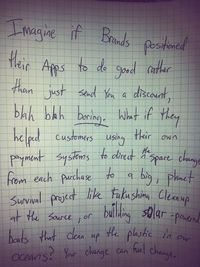 Imagine if Brands positioned
their Apps to do good rather
than just send you a discount,
blah blah boring. What if they
helped customers using their own
payment systems to direct the space change
from each purchase to a big, planet
survival project like Fukushima Cleanup
at the source, or building solar-powered
boats that clean up the plastic in our
oceans? Your change can fuel change.